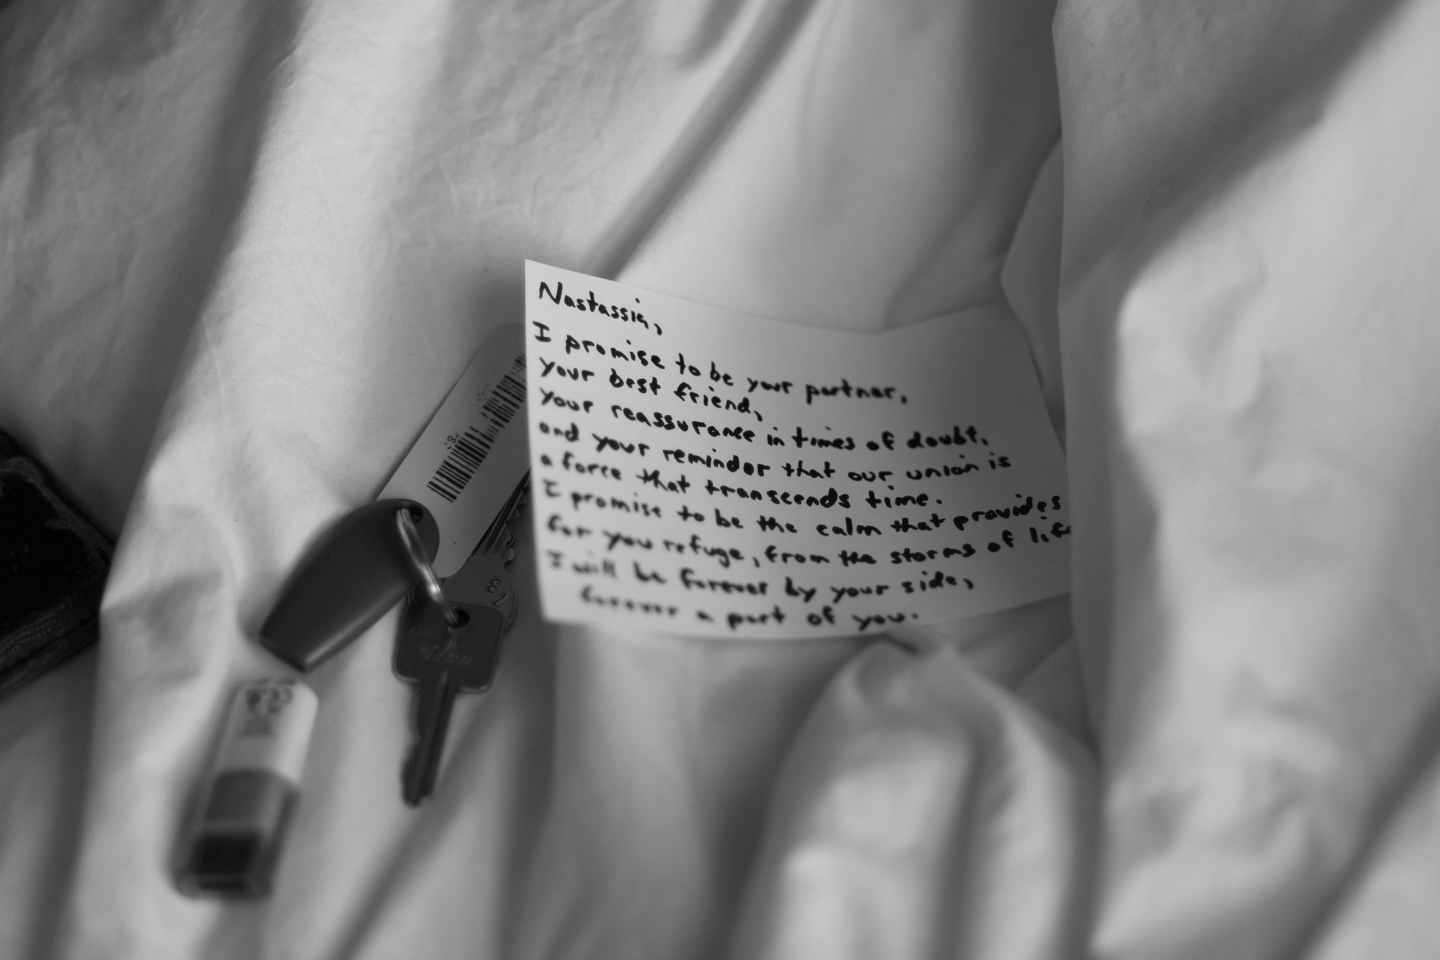 Nastassia,
I promise to be your partner,
your best friend,
your reassurance in times of doubt,
and your reminder that our union is
a force that transcends time.
I promise to be the calm that provides
for you refuge, from the storms of life
I will be forever by your side,
forever a part of you.
78